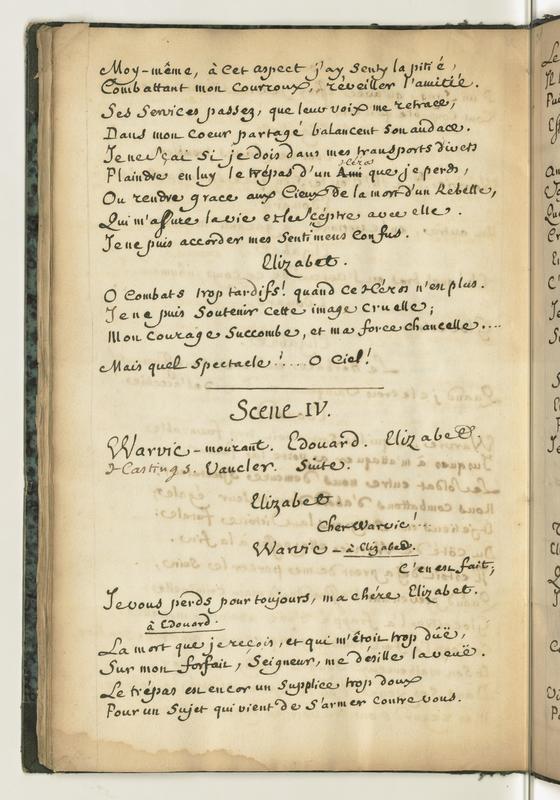 Moy-même, à cet aspect j'ay senty la pitié,
Combattant mon courroux, réveiller l'amitié.
Ses services passez, que leur voix me retrace,
Dans mon coeur partagé balancent son audace.
Je ne sçai si je dois dans mes transports divers
héros
Plaindre en luy le trépas d'un Ami que je perds,
Ou rendre grace aux Cieux de la mort d'un Rebelle,
Qui m'assure la vie et le sceptre avec elle.
Je ne puis accorder mes sentimens confus.
Elizabet.
O Combats trop tardifs! quand ce Héros n'en plus.
Je ne puis soutenir cette image cruelle;
Mon courage succombe, et ma force chancelle....
Mais quel spectacle!.... O Ciel!
Scene IV.
Warvic - mourant. Edouard. Elizabet.
Hastings. Vaucler. Suite.
Elizabet.
Cher Warvic!...
Warvic - à Elizabet.
C'en est fait;
Je vous perds pour toujours, ma chére Elizabet.
à Edouard.
La mort que je reçois, et qui m'étoit trop düë,
Sur mon forfait, Seigneur, me désille la veuë.
Le trépas est encor un supplice trop doux
Pour un sujet qui vient de s'armer contre vous.